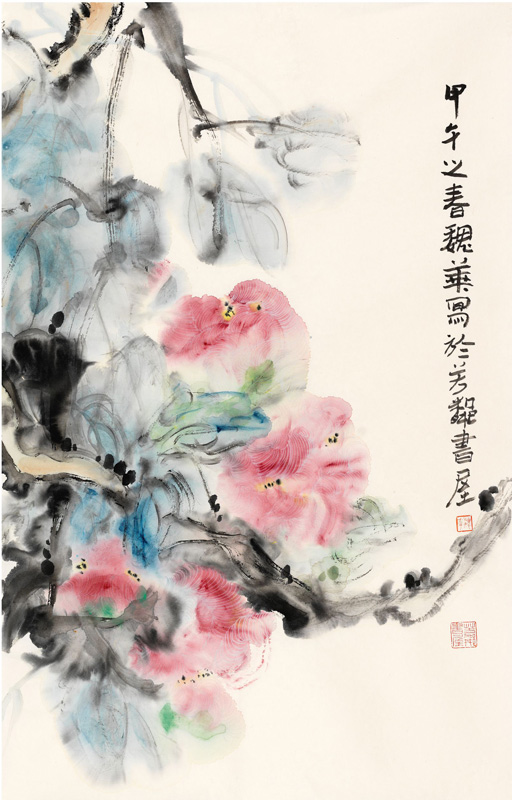 甲午之春魏華寫於芳馥書屋